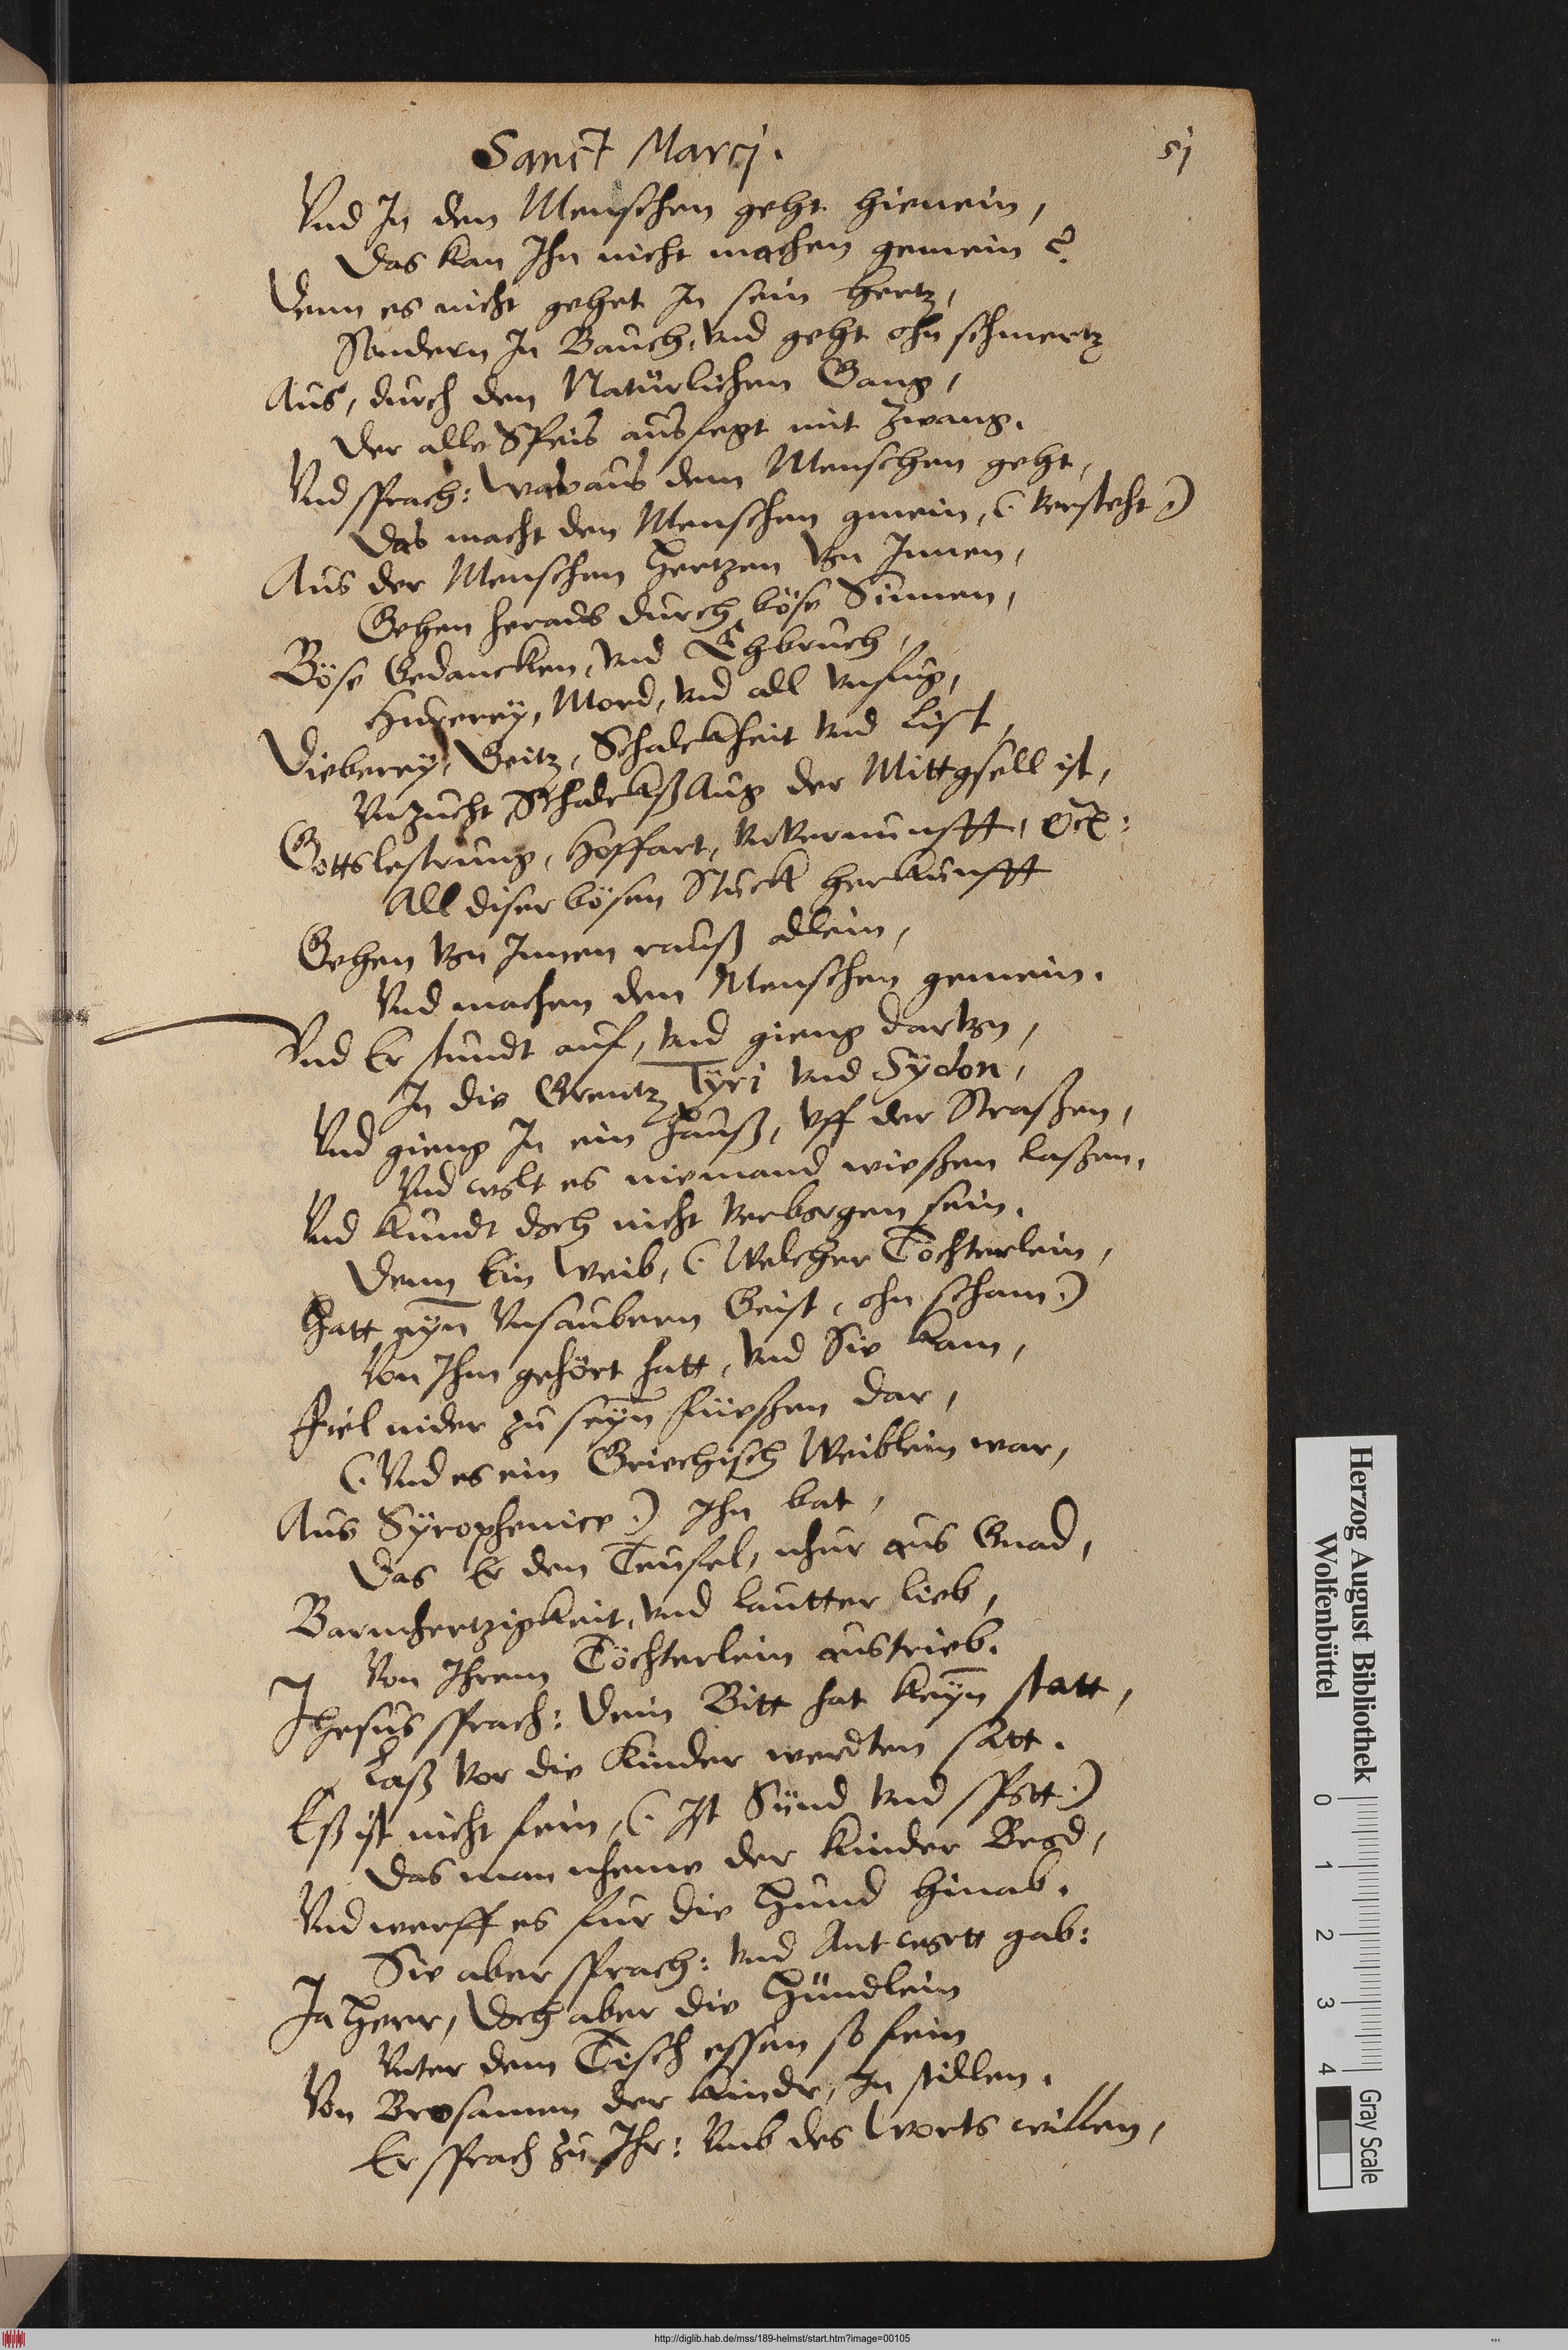 Sanct Marcj.
51
Vnd In den Menschen geht hienein,
Das kan Ihn nicht machen gemein?
Denn es nicht gehet In sein Hertz,
Sondern In Bauch, vnd geht ohn schmertz
Aus, durch den Natürlichen Gang,
Der alle Speis ausfegt mit Zwang.
Vnd sprach: Was aus dem Menschen geht,
Das macht den Menschen gmein, (versteht)
Aus der Menschen Hertzen von Innen,
Gehen heraus durch böse Sinnen,
Böse Gedancken, vnd Ehbruch,
Hurerey, Mord, vnd all vnfug,
Dieberey, Geitz, Schalckheit vnd List,
Vnzucht, Schalckßaug der Mittgsell ist,
Gottslestrung, Hoffart, Vnvernunfft, etc:
All diser bösen Stuck herkunfft
Gehen von Innen rauß allein,
Vnd machen den Menschen gemein.
Vnd Er stundt auf, vnd gieng darvon,
In die Grentz Tyri vnd Sydon,
Vnd gieng In ein Hauß, vff der Straßen,
Vnd wolt es niemand wießen laßen,
Vnd kundt doch nicht verborgen sein.
Denn Ein Weib, (Welcher Töchterlein,
Hatt eyn̄ Vnsaubern Geist, ohn scham)
Von Ihm gehört hatt, vnd Sie kam,
Fiel nider zu seyn̄ füeßen dar,
(Vnd es ein Griechisch Weiblein war,
Aus Syrophenice) Ihn bat,
Das Er den Teufel, nhur aus Gnad,
Barmhertzigkeit, vnd lautter lieb,
Von Ihrem Töchterlein austrieb.
Jhesus sprach: Dein Bitt hat keyn̄ statt,
Laß vor die Kinder werdten satt.
Eß ist nicht fein, (Ist Sünd vnd spott)
Das man nheme der Kinder Brod,
Vnd werff es fur die Hund hinab.
Sie aber sprach: vnd Antwortt gab:
Ja Herr, Doch aber die Hündlein
Vnter dem Tisch essen so fein
Von Brosamen der Kindr, In stillen.
Er sprach zu Ihr: Vmb des Worts willen,
Herzog August Bibliothek
Wolfenbüttel
0 1 2 3 4
Gray Scale
http://diglib.hab.de/mss/189-helmst/start.htm?image=00105